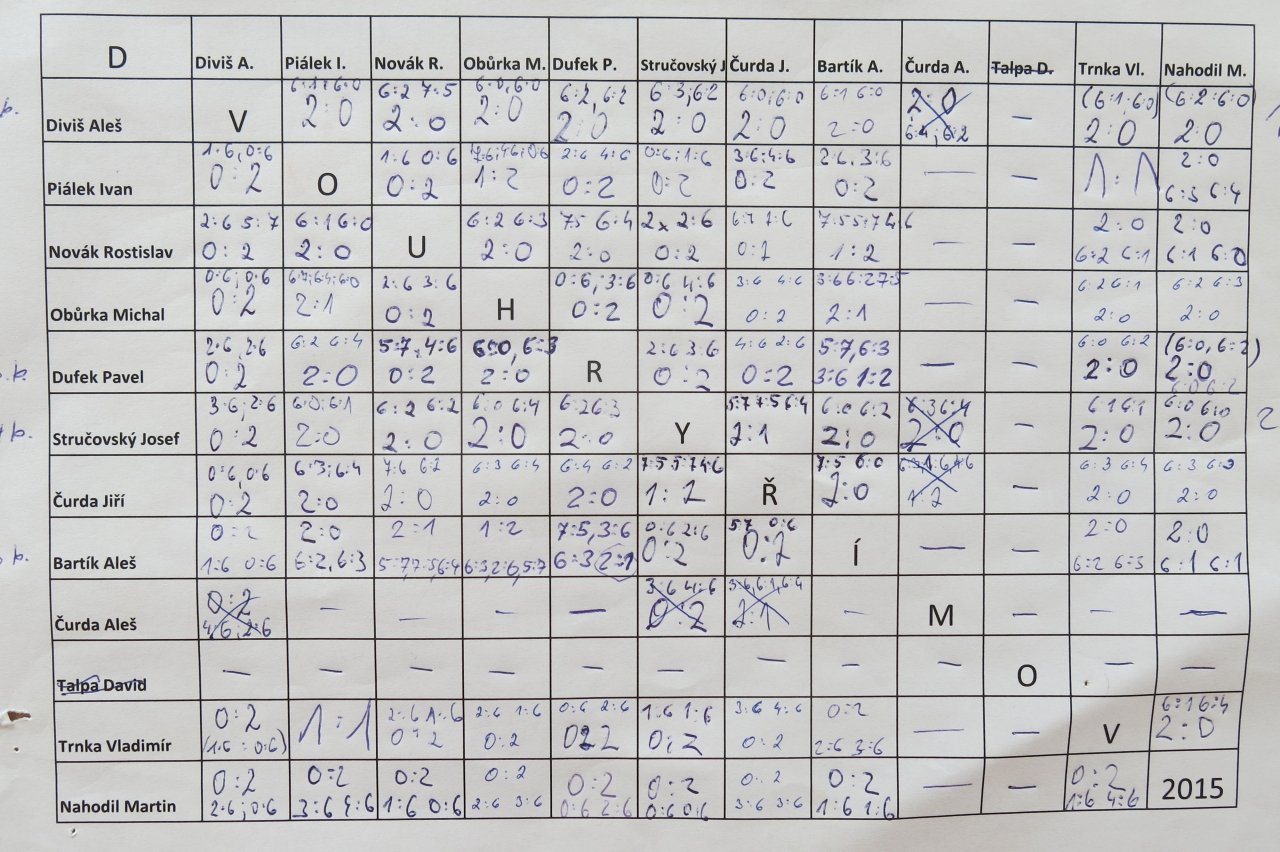 D Diviš A. Piálek I. Novák R. Obůrka M. Dufek P. Stručovský J Čurda J. Bartík A. Čurda A. Talpa D. Trnka Vl. Nahodil M.
6:1 6:0 6:2 7:5 6:0, 6:0 6:2, 6:2 6:3; 6:2 6:0; 6:0 6:1 6:0 2:0 (6:1; 6:0) (6:2; 6:0)
Diviš Aleš V 2:0 2:0 2:0 2:0 2:0 2:0 2:0 6:4; 6:2 — 2:0 2:0
1:6, 0:6 1:6 0:6 7:6, 4:6, 0:6 2:6 4:6 0:6; 1:6 3:6; 4:6 2:6, 3:6 2:0
Piálek Ivan 0:2 O 0:2 1:2 0:2 0:2 0:2 0:2 — — 1:1 6:3 6:4
2:6 5:7 6:1 6:0 6:2 6:3 7:5 6:4 2x 2:6 7:5 5:7 4:6 2:0 2:0
Novák Rostislav 0:2 2:0 U 2:0 2:0 0:2 0:2 1:2 — — 6:2 6:1 6:1 6:0
0:6; 0:6 6:7; 6:4; 6:0 2:6 3:6 0:6, 3:6 0:6 4:6 3:6 4:6 3:6 6:2 7:5 6:2 6:1 6:2 6:3
Obůrka Michal 0:2 2:1 0:2 H 0:2 0:2 0:2 2:1 — — 2:0 2:0
2:6, 2:6 6:2 6:4 5:7, 4:6 6:0, 6:3 2:6 3:6 4:6 2:6 5:7, 6:3 6:0 6:2 (6:0, 6:2)
Dufek Pavel 0:2 2:0 0:2 2:0 R 0:2 0:2 3:6 1:2 — — 2:0 2:0
6:0 6:2
3:6; 2:6 6:0; 6:1 6:2 6:2 6:0 6:4 6:2 6:3 5:7 7:5 6:4 6:0 6:2 6:3 6:4 6:1 6:1 6:0 6:0
Stručovský Josef 0:2 2:0 2:0 2:0 2:0 Y 2:1 2:0 2:0 — 2:0 2:0 2
0:6, 0:6 6:3; 6:4 7:6 6:2 6:3 6:4 6:4 6:2 7:5 5:7 4:6 7:5 6:0 6:3 6:4 6:3 6:3
Čurda Jiří 0:2 2:0 2:0 2:0 2:0 1:2 Ř 2:0 1:2 — 2:0 2:0
0:2 2:0 2:1 1:2 7:5, 3:6 0:6 2:6 5:7 0:6 2:0 2:0
Bartík Aleš 1:6 0:6 6:2, 6:3 5:7 7:5 6:4 6:3, 2:6, 5:7 6:3 2:1 0:2 0:2 Í — — 6:2 6:3 6:1 6:1
0:2 3:6 4:6 3:6, 6:1, 6:4
Čurda Aleš 4:6; 2:6 — — — — 0:2 2:1 — M — — —
Talpa David — — — — — — — — — O — —
0:2 2:6 1:6 2:6 1:6 0:6 2:6 1:6 1:6 3:6 4:6 0:2 6:1 6:4
Trnka Vladimír (1:6; 0:6) 1:1 0:2 0:2 0:2 0:2 0:2 2:6 3:6 — — V 2:0
0:2 0:2 0:2 0:2 0:2 0:2 0:2 0:2 0:2
Nahodil Martin 2:6; 0:6 3:6 4:6 1:6 0:6 2:6 3:6 0:6 2:6 0:6 0:6 3:6 3:6 1:6 1:6 — — 1:6 4:6 2015